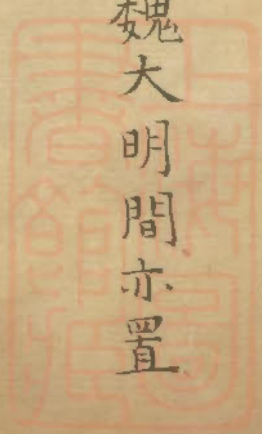 魏大明間亦置